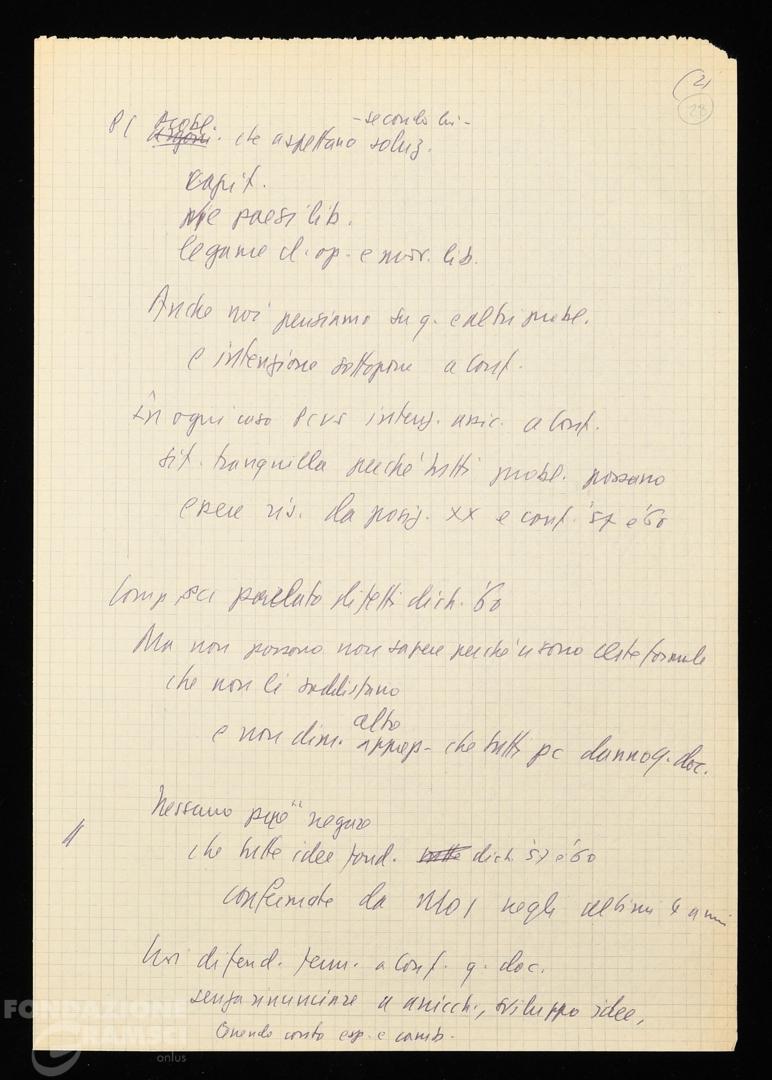 (2)
28
PCI probl. che aspettano - secondo lui - soluz.
capit.
paesi lib.
legame cl. op. e mov. lib.
Anche noi pensiamo su q. e altri probl.
e intenzione sottoporre a conf.
In ogni caso PCUS intenz. unic. a conf.
sit. tranquilla perché tutti probl. possano
essere ris. da posiz. XX e conf. '57 e '60
Comp. PCI parlato difetti dich. '60
Ma non possono non sapere perché vi sono certe formule
che non li soddisfano
e non dim. alto apprez. che tutti pc danno q. doc.
Nessuno può negare
che tutte idee fond. dich. '57 e '60
confermate da MOI negli ultimi 4 anni
Noi difend. ferm. a conf. q. doc.
senza rinunciare a arricch., sviluppo idee,
tenendo conto esp. e camb.
FONDAZIONE
GRAMSCI
onlus